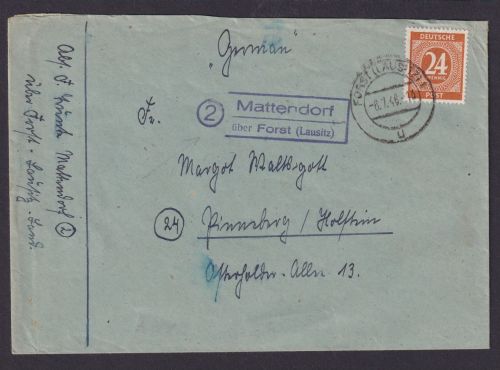 „German“
DEUTSCHE
24
PFENNIG
POST
FORST (LAUSITZ)
-8.7.46.-10
u
Fr.
2
Mattendorf
über Forst (Lausitz)
Margot Waltsgott
24
Pinneberg / Holstein
Osterholder-Allee 13.
Abs. Mattendorf 2
über Forst - Lausitz. Land.